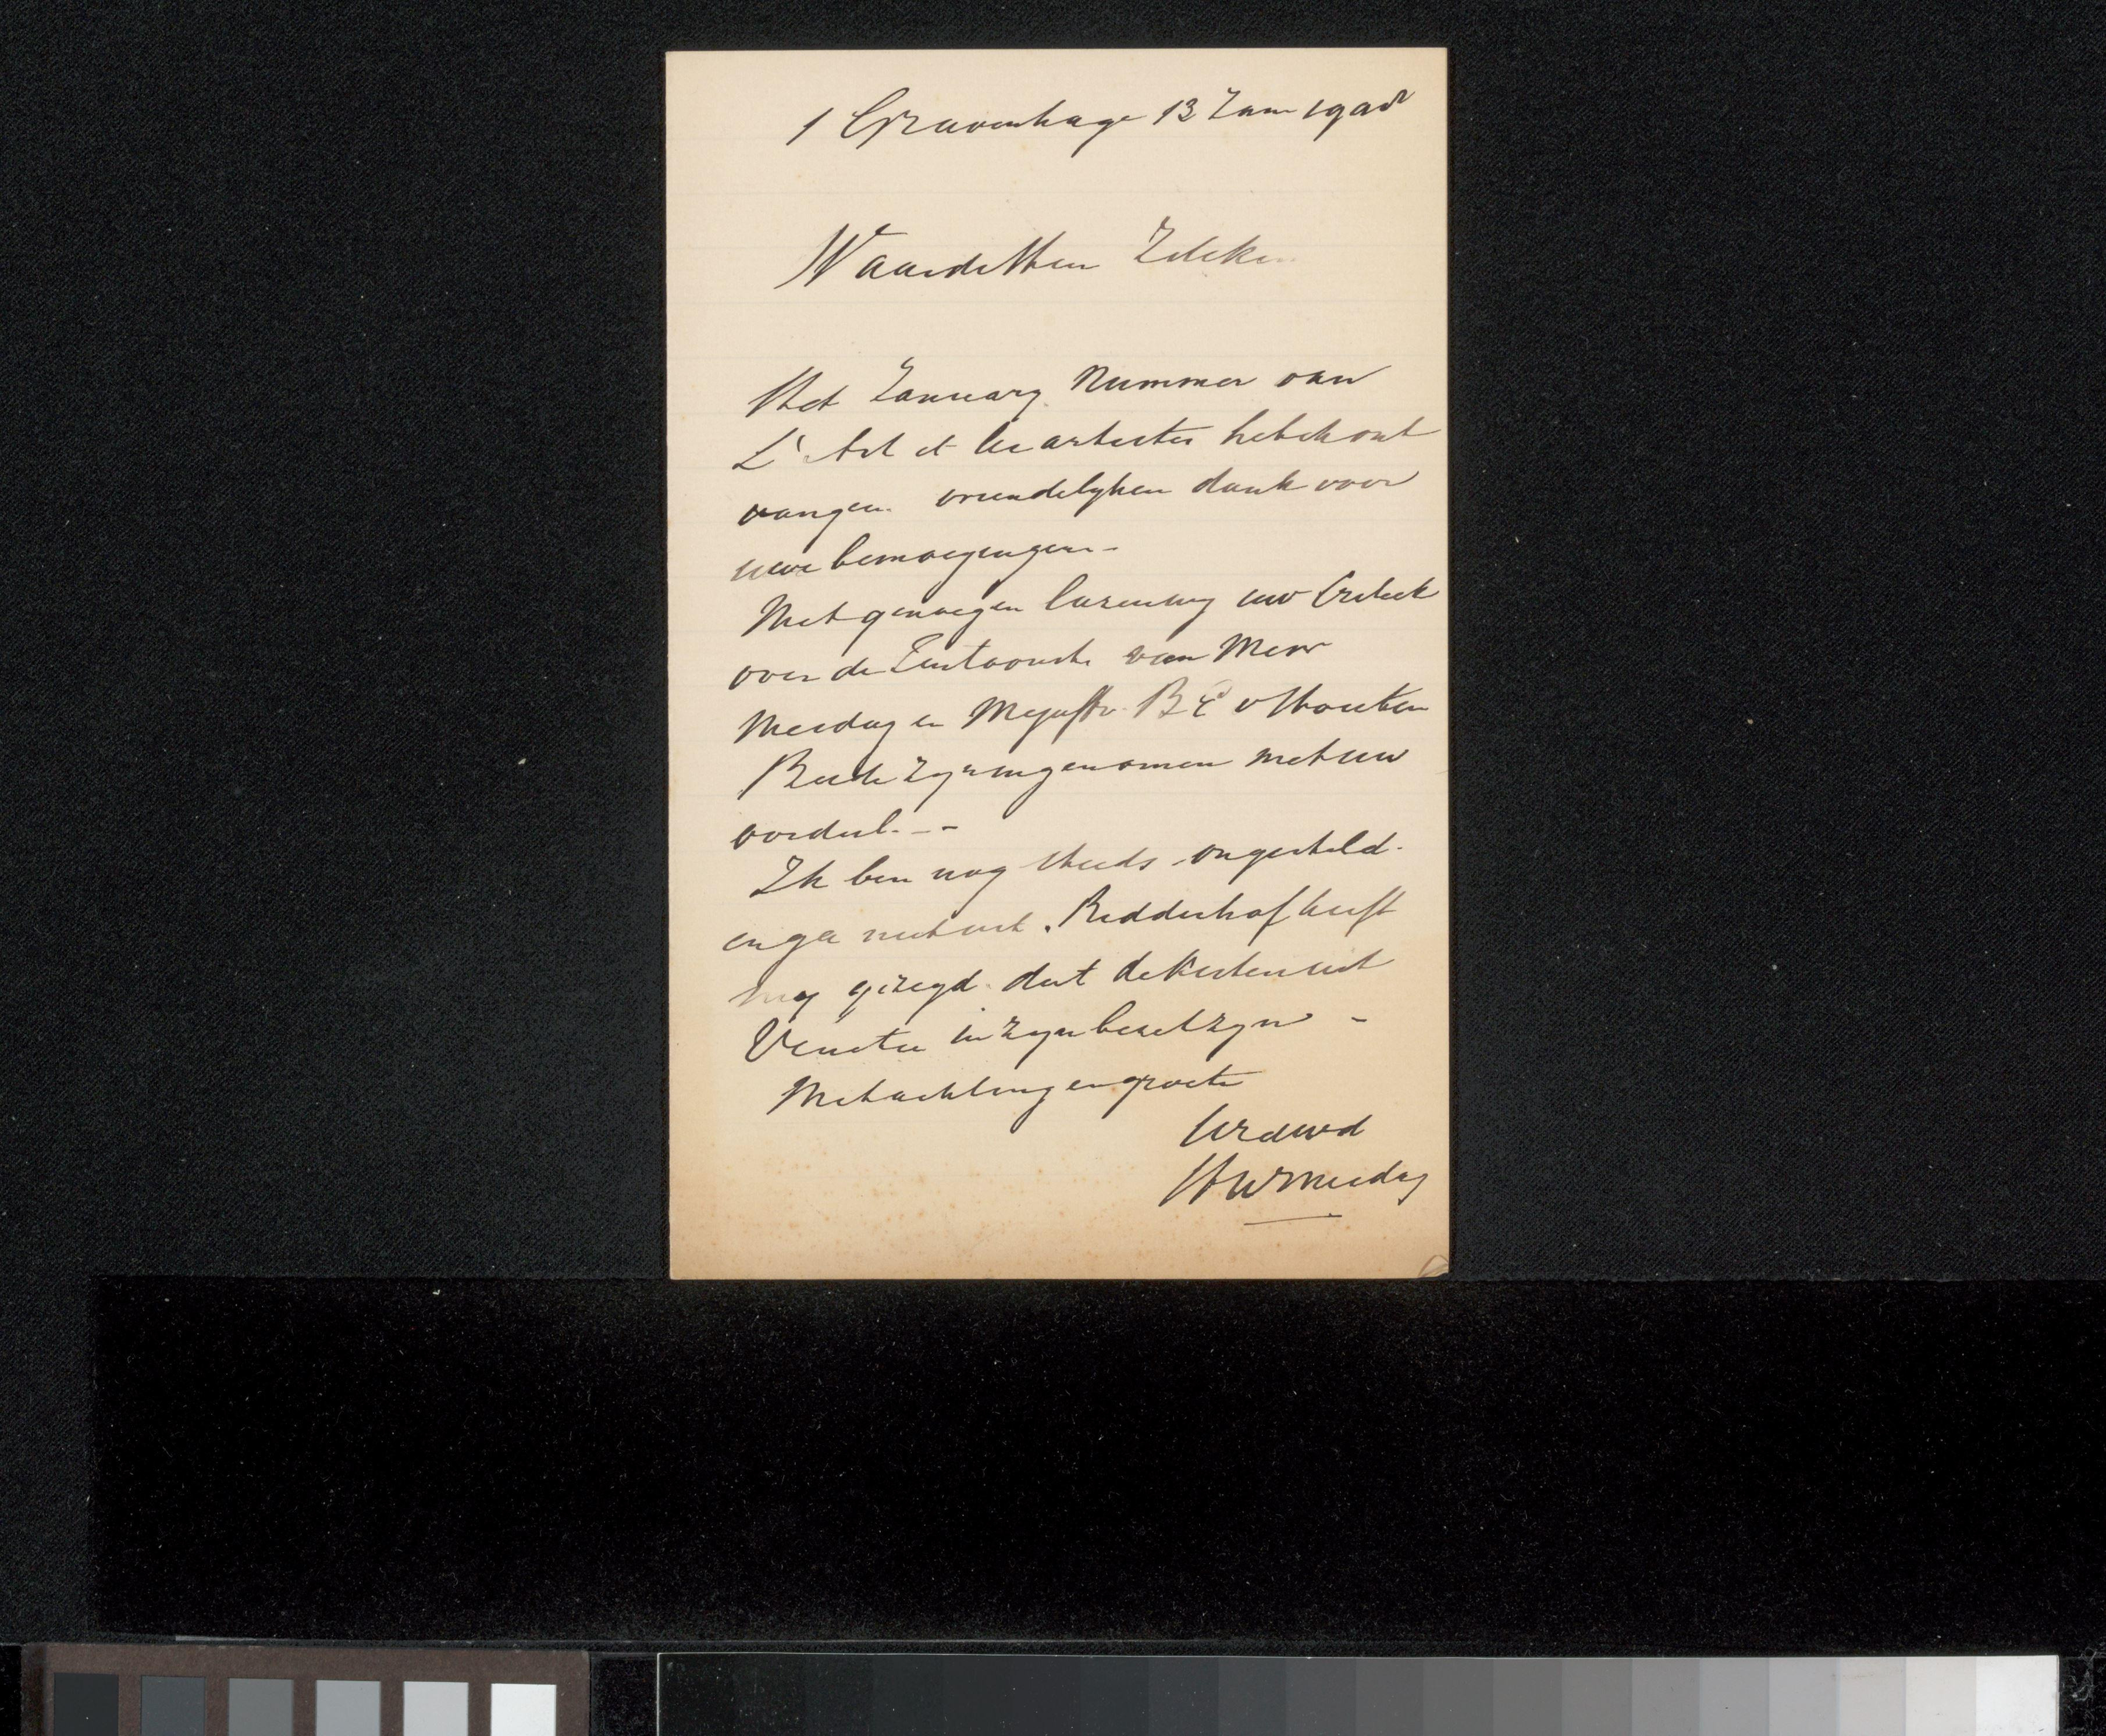 s Gravenhage 13 Jan 1908
Waardethen Zilcken
Het January Nummer van
L'Art et les artistes heb ik ont
vangen. vriendelyken dank voor
uwe bemoeyingen -
Met genoegen lazen wy uw Critiek
over de Tentoonst. van Mevr
Mesdag en Mejuffr. B E v Houten
Beide zyn ingenomen met uw
oordeel. - -
Ik ben nog steeds ongesteld.
en ga niet uit. Ridderhof heeft
my gezegd dat de Kisten uit
Venetie in zyn bezit zyn -
Met achting en groete
Uw dwd
HWMesdag